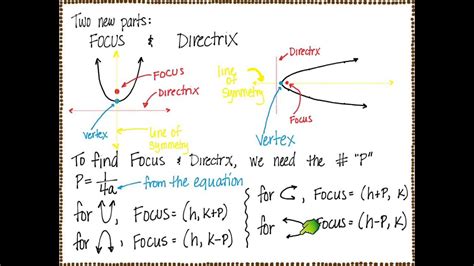 Two new parts:
FOCUS & DIRECTRIX
FOCUS
Directrix
Vertex
line of
symmetry
Directrix
line of
symmetry
Focus
Vertex
To find Focus & Directrx, we need the # "P"
P = 1/4a from the equation
for Focus = (h, K+P)
for Focus = (h, K-P)
for Focus = (h+P, K)
for Focus = (h-P, K)